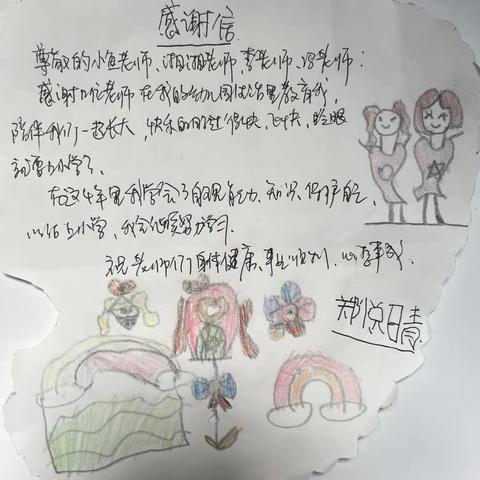 感谢信
尊敬的小鱼老师、湘湘老师、李老师、冯老师:
感谢几位老师在我的幼儿园生活里教育我,
陪伴我们一起长大,快乐的时过得快,飞快,眨眼
就要上小学了。
在这4年里我学会了自我能力、知识、保护自己,
以后上小学,我会继续努力学习。
祝老师们身体健康、事业顺利、心想事成。
郑悦晴